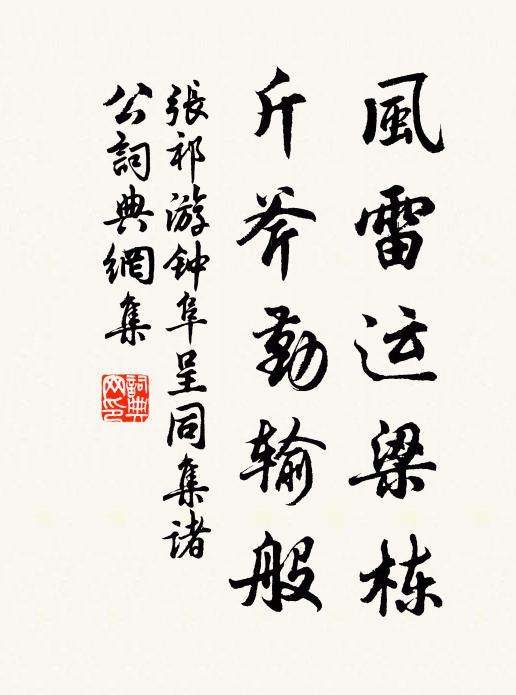 風雷运梁栋
斤斧勤输般
張祁游钟阜呈同集诸
公詞典網集
詞典
网印